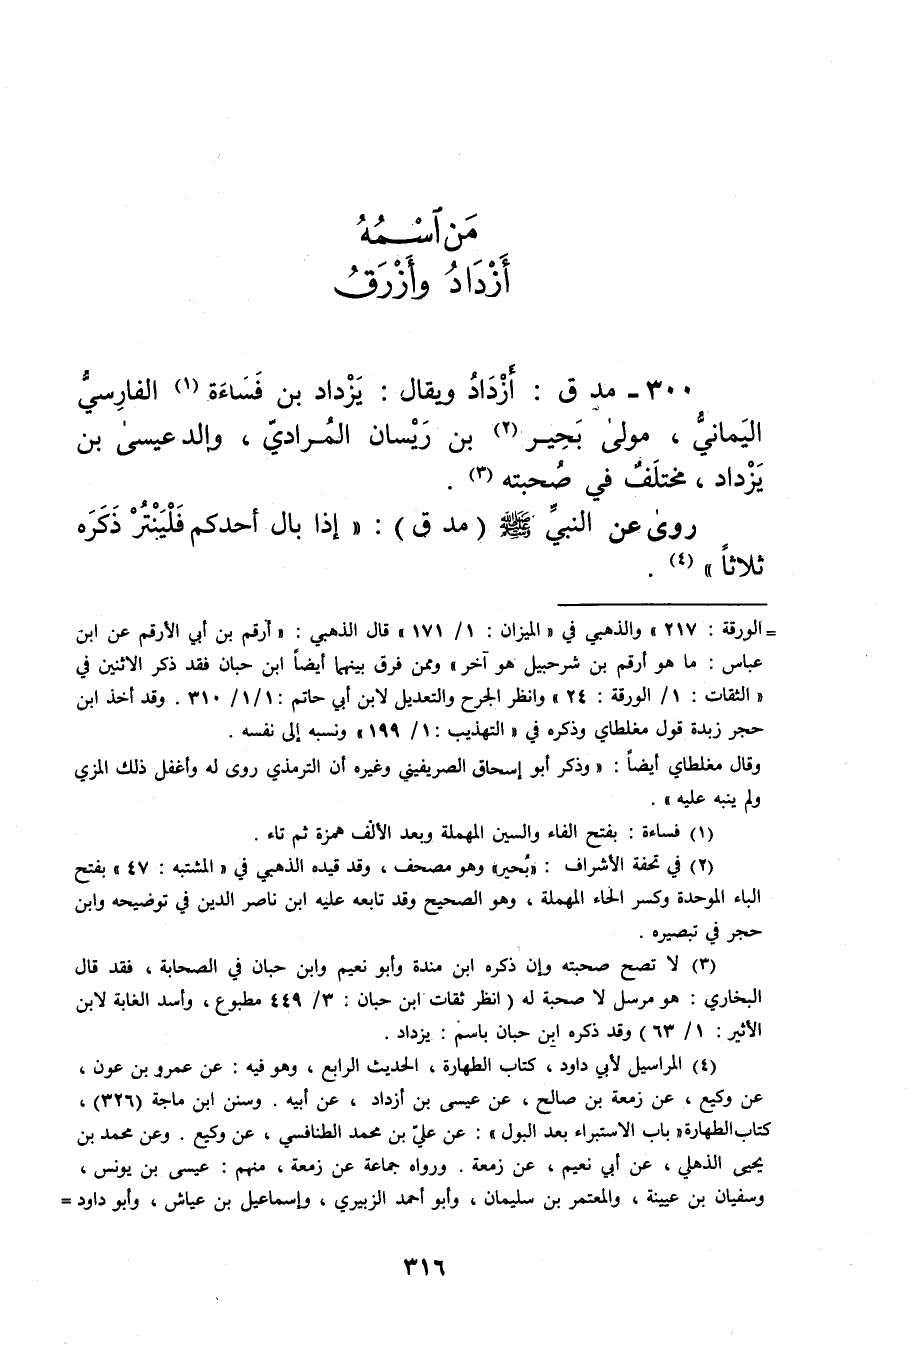 مَن ٱسْمُهُ
أَزْدَادُ وأَزْرَقُ
٣٠٠ - مد ق : أَزْدَادُ ويقال : يَزْداد بن فَسَاءَة (١) الفارِسيُّ
اليَمانيُّ ، مولىٰ بَحِير (٢) بن رَيْسان المُراديّ ، والد عيسىٰ بن
يَزْداد ، مختلَفٌ في صُحبته (٣) .
روىٰ عن النبيِّ ﷺ ( مد ق ) : « إذا بال أحدكم فَلْيَنْتُرْ ذَكَرَه
ثلاثاً » (٤) .
= الورقة : ٢١٧ » والذهبي في « الميزان : ١/ ١٧١ » قال الذهبي : « أرقم بن أبي الأرقم عن ابن
عباس : ما هو أرقم بن شرحبيل هو آخر » وممن فرق بينهما أيضاً ابن حبان فقد ذكر الاثنين في
« الثقات : ١/ الورقة : ٢٤ » وانظر الجرح والتعديل لابن أبي حاتم : ١/١/ ٣١٠ . وقد أخذ ابن
حجر زبدة قول مغلطاي وذكره في « التهذيب : ١/ ١٩٩ » ونسبه إلى نفسه .
وقال مغلطاي أيضاً : « وذكر أبو إسحاق الصريفيني وغيره أن الترمذي روى له وأغفل ذلك المزي
ولم ينبه عليه » .
(١) فساءة : بفتح الفاء والسين المهملة وبعد الألف همزة ثم تاء .
(٢) في تحفة الأشراف : «بُحير» وهو مصحف ، وقد قيده الذهبي في « المشتبه : ٤٧ » بفتح
الباء الموحدة وكسر الحاء المهملة ، وهو الصحيح وقد تابعه عليه ابن ناصر الدين في توضيحه وابن
حجر في تبصيره .
(٣) لا تصح صحبته وإن ذكره ابن مندة وأبو نعيم وابن حبان في الصحابة ، فقد قال
البخاري : هو مرسل لا صحبة له ( انظر ثقات ابن حبان : ٣/ ٤٤٩ مطبوع ، وأسد الغابة لابن
الأثير : ١/ ٦٣ ) وقد ذكره ابن حبان باسم : يزداد .
(٤) المراسيل لأبي داود ، كتاب الطهارة ، الحديث الرابع ، وهو فيه : عن عمرو بن عون ،
عن وكيع ، عن زمعة بن صالح ، عن عيسى بن أزداد ، عن أبيه . وسنن ابن ماجة (٣٢٦) ،
كتاب الطهارة « باب الاستبراء بعد البول » : عن عليّ بن محمد الطنافسي ، عن وكيع . وعن محمد بن
يحيى الذهلي ، عن أبي نعيم ، عن زمعة . ورواه جماعة عن زمعة ، منهم : عيسى بن يونس ،
وسفيان بن عيينة ، والمعتمر بن سليمان ، وأبو أحمد الزبيري ، وإسماعيل بن عياش ، وأبو داود =
٣١٦